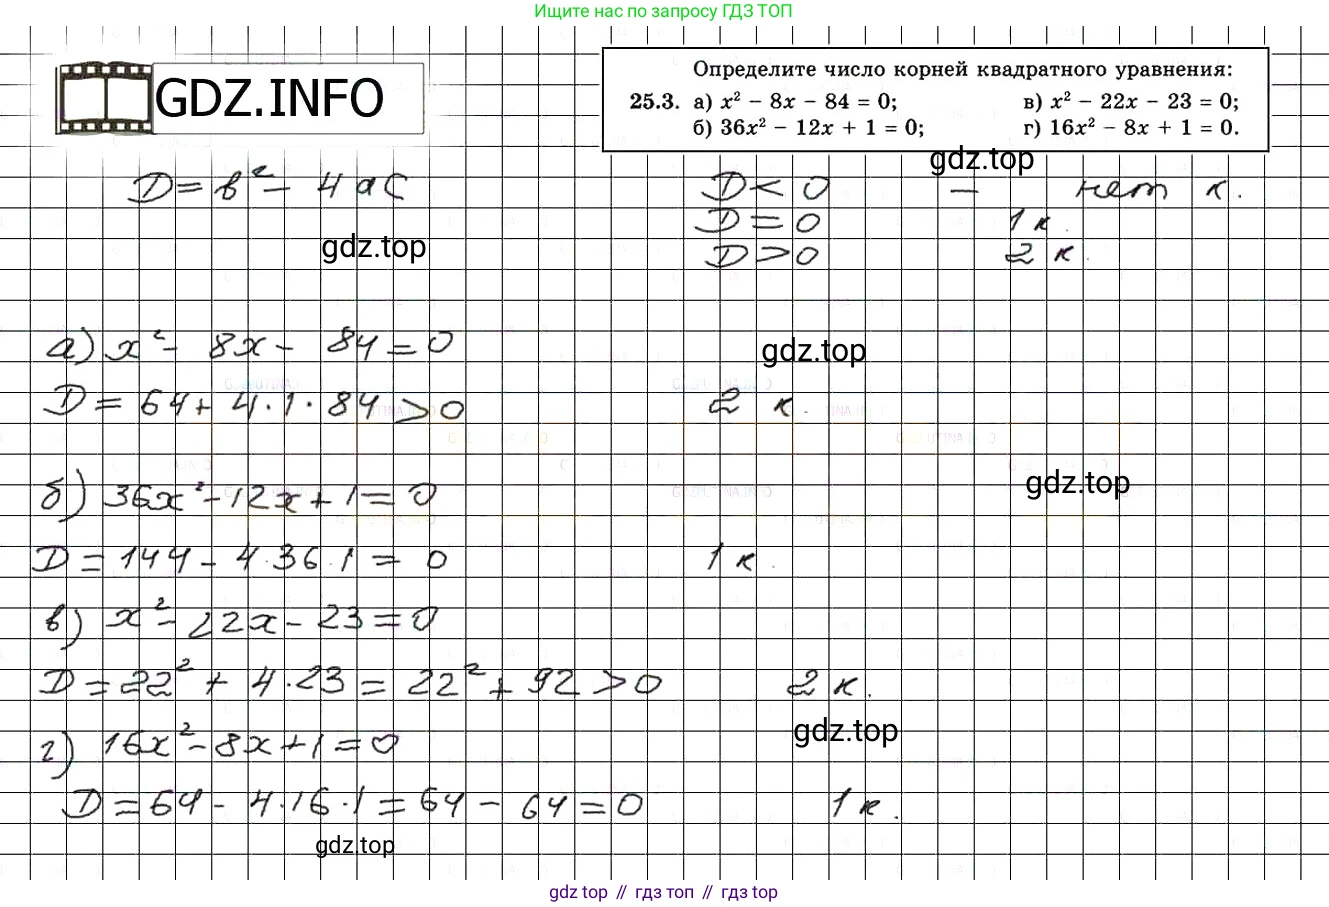 Ищите нас по запросу ГДЗ ТОП
GDZ.INFO
Определите число корней квадратного уравнения:
25.3. а) x² − 8x − 84 = 0; в) x² − 22x − 23 = 0;
б) 36x² − 12x + 1 = 0; г) 16x² − 8x + 1 = 0.
gdz.top
D = в² − 4ac D < 0 − нет к.
D = 0 1 к.
gdz.top
D > 0 2 к.
а) x² − 8x − 84 = 0
gdz.top
D = 64 + 4·1·84 > 0 2 к.
gdz.top
б) 36x² − 12x + 1 = 0
D = 144 − 4·36·1 = 0 1 к.
в) x² − 22x − 23 = 0
D = 22² + 4·23 = 22² + 92 > 0 2 к.
gdz.top
г) 16x² − 8x + 1 = 0
D = 64 − 4·16·1 = 64 − 64 = 0 1 к.
gdz.top
gdz top // гдз топ // gdz top